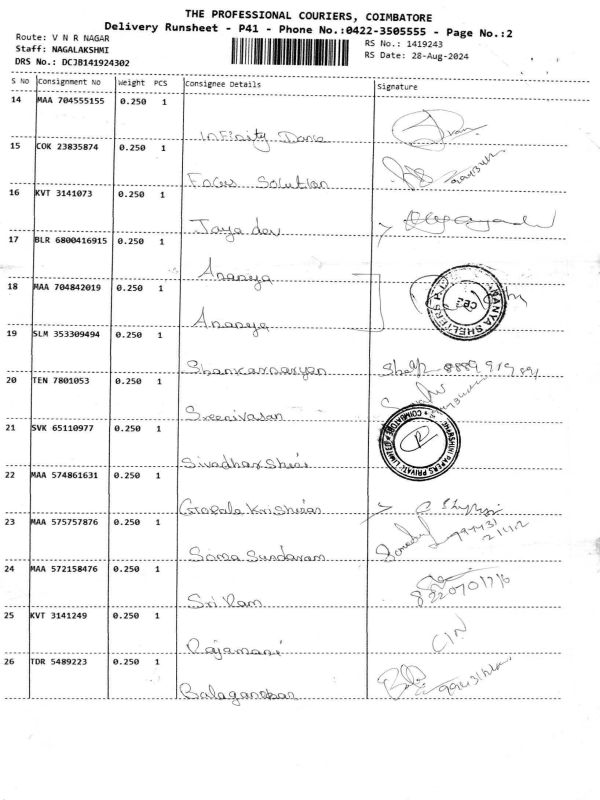 THE PROFESSIONAL COURIERS, COIMBATORE
Delivery Runsheet - P41 - Phone No.:0422-3505555 - Page No.:2
Route: V N R NAGAR
Staff: NAGALAKSHMI
DRS No.: DCJB141924302
RS No.: 1419243
RS Date: 28-Aug-2024
S No Consignment No Weight PCS Consignee Details Signature
14 MAA 704555155 0.250 1
Infinity Dance
15 COK 23835874 0.250 1
Focus Solution
16 KVT 3141073 0.250 1
Jaya dev
17 BLR 6800416915 0.250 1
Ananya
18 MAA 704842019 0.250 1
Ananya
19 SLM 353309494 0.250 1
Shankarnaryan
20 TEN 7801053 0.250 1
Sreenivasan
21 SVK 65110977 0.250 1
Sivadharshini
22 MAA 574861631 0.250 1
Gopala Krishnan
23 MAA 575757876 0.250 1
Soma Sundaram
24 MAA 572158476 0.250 1
Sri Ram
8220701716
25 KVT 3141249 0.250 1
Rajamani
CIN
26 TDR 5489223 0.250 1
Bala